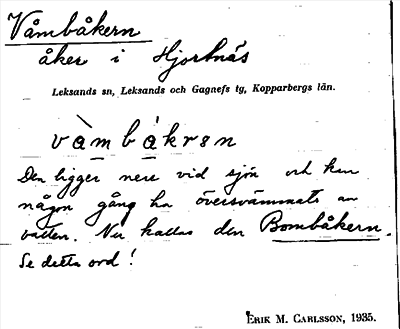 Våmbåkern
åker i Hjortnäs
Leksands sn, Leksands och Gagnefs tg, Kopparbergs län.
và̠mbá̠krən
Den ligger nere vid sjön och kan
någon gång ha översvämmats av
vatten. Nu kallas den Bombåkern.
Se detta ord!
ERIK M. CARLSSON, 1935.